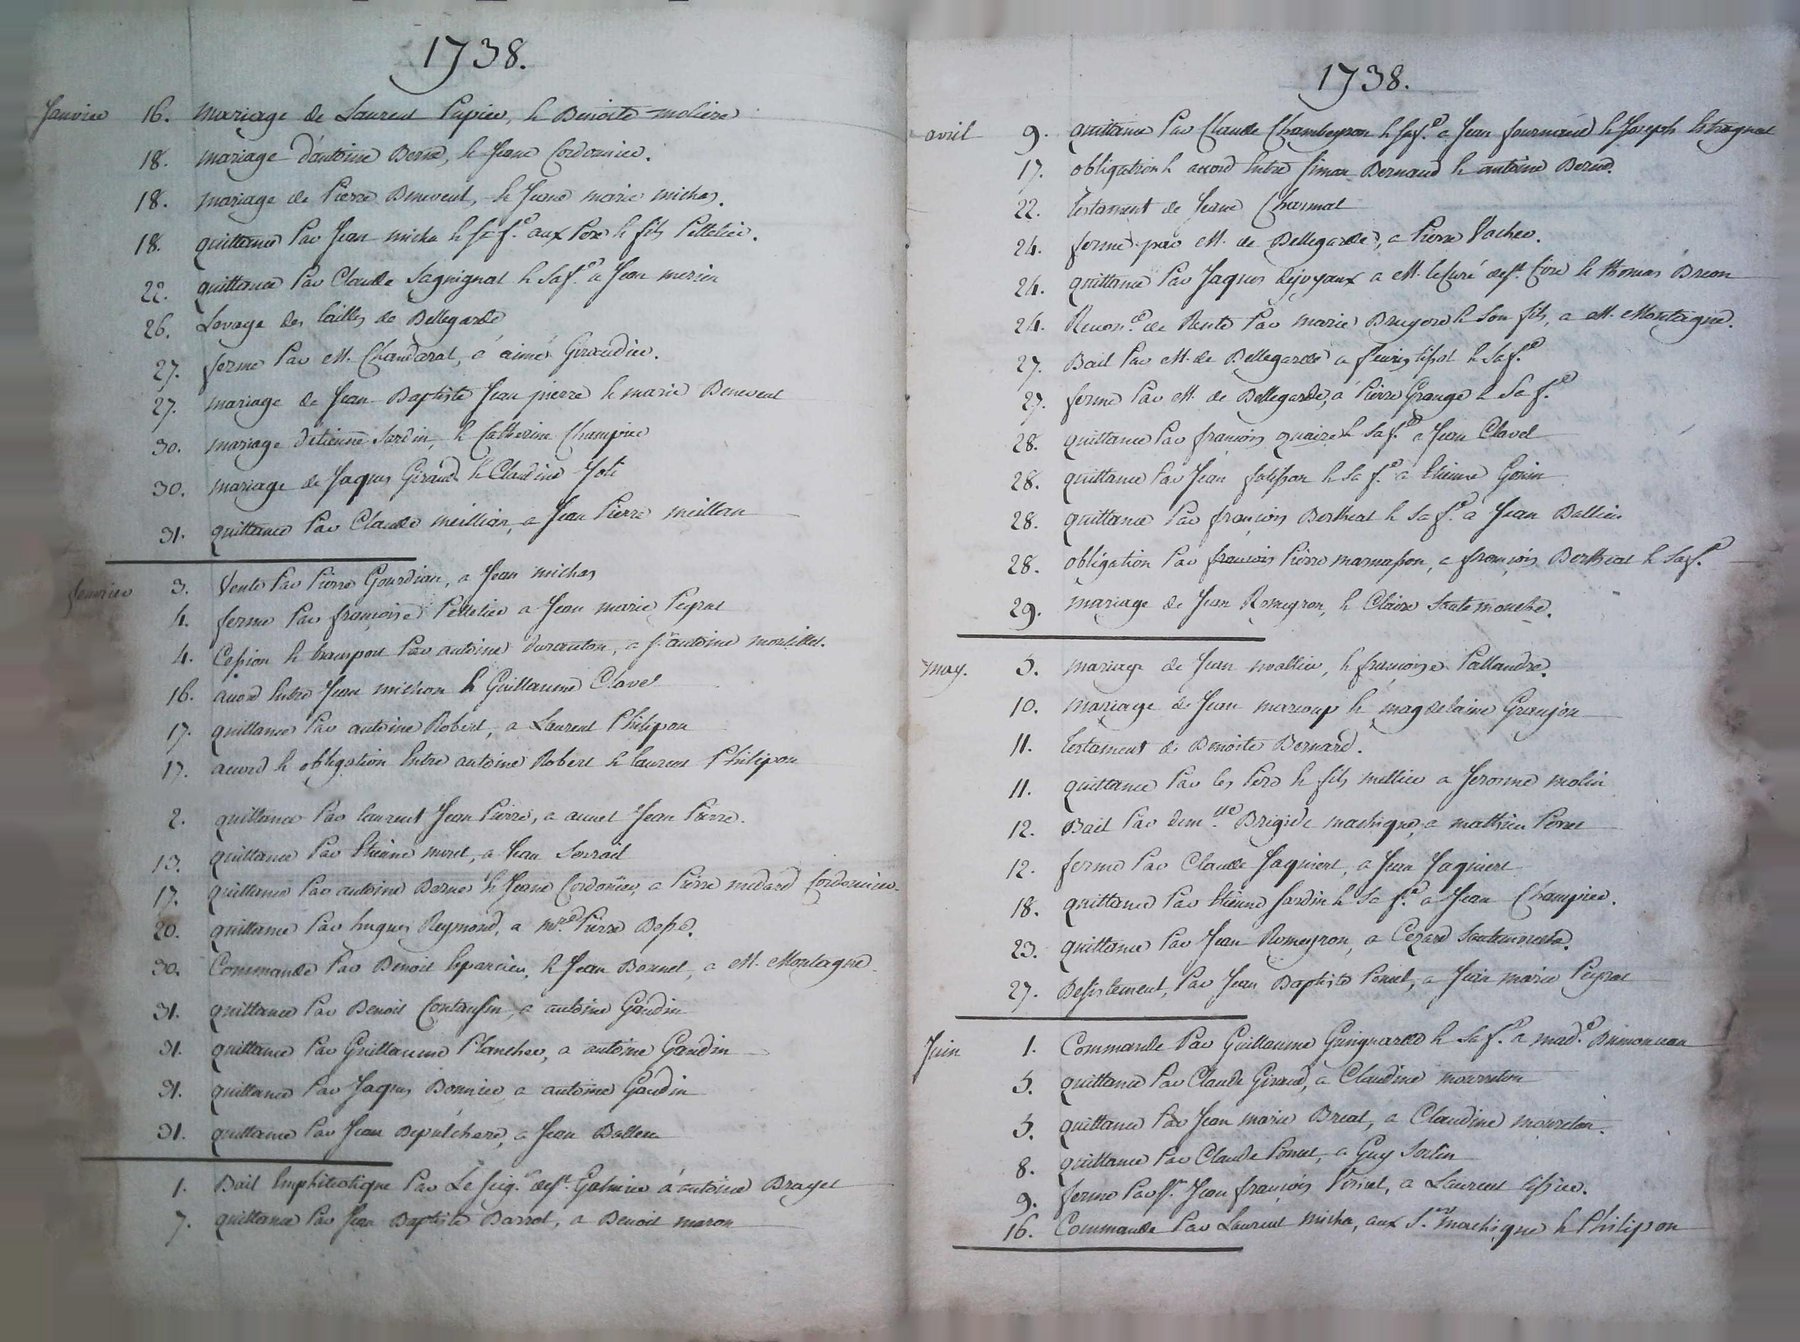 1738.
Janvier 16. mariage de Laurent Pupier, & Benoite moliere
18. mariage d'antoine Berne, & Jeane Cordonnier.
18. mariage de Pierre Benevent, & Jeane marie michas.
18. quittance Par Jean micha & sa f.e aux Pere & fils Pelletier.
22. quittance Par Claude Sagnignat & sa f.e a Jean merieu
26. Levage des tailles de Bellegarde
27. ferme Par M. Chandarat, a aimé Giraudier.
27. mariage de Jean Baptiste Jean pierre & marie Benevent
30. mariage d'etienne Jardin, & Catherine Champier
30. mariage de Jaques Giraud & Claudine Joli
31. quittance Par Claude meillian, a Jean Pierre meillan
fevrier 3. Vente Par Pierre Gourdian, a Jean michas
4. ferme Par françoise Pelletier a Jean marie Peyrat
4. Cession & transport Par antoine duranton, a s.r antoine mortillet.
16. acord Entre Jean michon & Guillaume Clavel
17. quittance Par antoine Robert, a Laurent Philipon
17. acord & obligation Entre antoine Robert & Laurent Philipon
2. quittance Par Laurent Jean Pierre, a annet Jean Pierre.
13. quittance Par Etienne muret, a Jean Serrail
17. quittance Par antoine Berne & Jeane Cordonier, a Pierre medard Cordonnier
20. quittance Par hugues Reymond, a Pierre Besse.
30. Commande Par Benoit Eparcieu, & Jean Bonnet, a M. Montagne
31. quittance Par Benoit Contansin, a antoine Gaudin
31. quittance Par Guillaume Plancher, a antoine Gaudin
31. quittance Par Jaques Bonnier, a antoine Gaudin
31. quittance Par Jean Depulchare, a Jean Ballieu
1. Bail Emphiteotique Par Le de st. Galmier a antoine Brayet
7. quittance Par Jean Baptiste Barrot, a Benoit maron
1738.
avril 9. quittance Par Claude Chambeyron & sa f.e a Jean fournand & Joseph
17. obligation & acord Entre Simon Bernard & antoine Berne.
22. testament de Jeane Charmat
24. ferme par M. de Bellegarde, a Pierre Vacher.
24. quittance Par Jaques dejoyaux a M. le Curé de st. Cire & thomas Breon
24. Recon.ce de Rente Par marie Bruyere & son fils, a M. Montagne.
27. Bail Par M. de Bellegarde a tisSot & sa f.e
27. ferme Par M. de Bellegarde, a Pierre Grange & sa f.e
28. quittance Par françois quaire & sa f.e a Jean Clavel
28. quittance Par Jean & sa f.e a Etienne Gonin
28. quittance Par françois Bertheat & sa f.e a Jean Ballieu
28. obligation Par françois Pierre marnasson, a françois Bertheat & sa f.e
29. mariage de Jean Romeyron, & Claire Sautemouche.
may. 5. mariage de Jean noallier, & françoise Pallandre.
10. mariage de Jean marcoup & magdelaine Granjon
11. testament de Benoite Bernard.
11. quittance Par les Pere & fils mellier a Jerosme molin
12. Bail Par dem.lle Brigide machique a mathieu Poncet
12. ferme Par Claude Jaquient, a Jean Jaquient
18. quittance Par Etienne Jardin & sa f.e a Jean Champier.
23. quittance Par Jean Romeyron, a Cezard Sautemouche.
27. Desistement, Par Jean Baptiste Poncet, a Jean marie Peyrat
Juin 1. Commande Par Guillaume Guinguarde & sa f.e a mad.e Brimonvau
5. quittance Par Claude Giraud, a Claudine mourreton
5. quittance Par Jean marie Breat, a Claudine mourreton.
8. quittance Par Claude Poncet, a Guy Jarlin
9. ferme Par s.r Jean françois Poncet, a Laurent tisSier.
16. Commande Par Laurent micha, aux S.rs machique & Philipon